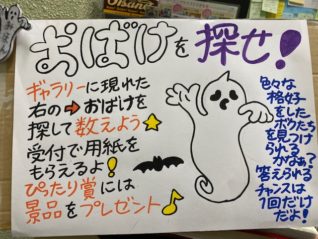 おばけを探せ！
ギャラリーに現れた
右の➡おばけを
探して数えよう
受付で用紙を
もらえるよ！
ぴったり賞には
景品をプレゼント♪
色々な
格好
をした
ボクたち
を見つけ
られる
かなぁ？
答えられる
チャンスは
1回だけ
だよ！